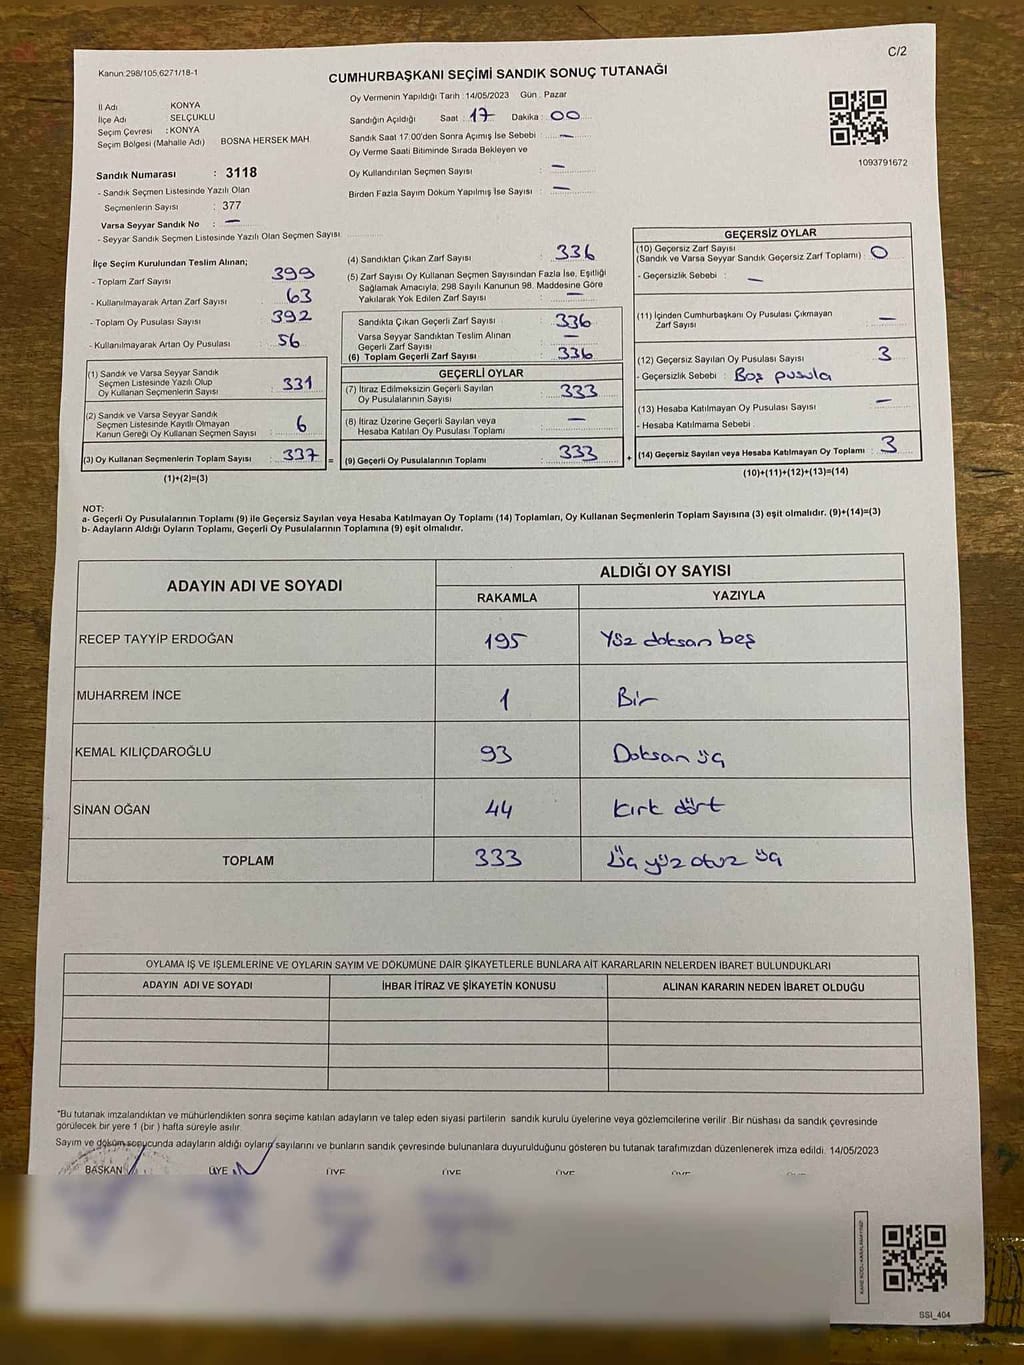 C/2
Kanun:298/105,6271/18-1
CUMHURBAŞKANI SEÇİMİ SANDIK SONUÇ TUTANAĞI
İl Adı KONYA
İlçe Adı SELÇUKLU
Seçim Çevresi : KONYA
Seçim Bölgesi (Mahalle Adı) BOSNA HERSEK MAH.
Sandık Numarası : 3118
- Sandık Seçmen Listesinde Yazılı Olan
Seçmenlerin Sayısı : 377
Varsa Seyyar Sandık No : —
- Seyyar Sandık Seçmen Listesinde Yazılı Olan Seçmen Sayısı
Oy Vermenin Yapıldığı Tarih : 14/05/2023 Gün : Pazar
Sandığın Açıldığı Saat : 17 Dakika : 00
Sandık Saat 17.00'den Sonra Açımış İse Sebebi : —
Oy Verme Saati Bitiminde Sırada Bekleyen ve
Oy Kullandırılan Seçmen Sayısı : —
Birden Fazla Sayım Döküm Yapılmış İse Sayısı : —
1093791672
İlçe Seçim Kurulundan Teslim Alınan;
- Toplam Zarf Sayısı : 399
- Kullanılmayarak Artan Zarf Sayısı : 63
- Toplam Oy Pusulası Sayısı : 392
- Kullanılmayarak Artan Oy Pusulası : 56
(1) Sandık ve Varsa Seyyar Sandık
Seçmen Listesinde Yazılı Olup
Oy Kullanan Seçmenlerin Sayısı : 331
(2) Sandık ve Varsa Seyyar Sandık
Seçmen Listesinde Kayıtlı Olmayan
Kanun Gereği Oy Kullanan Seçmen Sayısı : 6
(3) Oy Kullanan Seçmenlerin Toplam Sayısı : 337 =
(1)+(2)=(3)
(4) Sandıktan Çıkan Zarf Sayısı : 336
(5) Zarf Sayısı Oy Kullanan Seçmen Sayısından Fazla İse, Eşitliği
Sağlamak Amacıyla, 298 Sayılı Kanunun 98. Maddesine Göre
Yakılarak Yok Edilen Zarf Sayısı : —
Sandıkta Çıkan Geçerli Zarf Sayısı : 336
Varsa Seyyar Sandıktan Teslim Alınan
Geçerli Zarf Sayısı : —
(6) Toplam Geçerli Zarf Sayısı : 336
GEÇERLİ OYLAR
(7) İtiraz Edilmeksizin Geçerli Sayılan
Oy Pusulalarının Sayısı : 333
(8) İtiraz Üzerine Geçerli Sayılan veya
Hesaba Katılan Oy Pusulası Toplamı : —
(9) Geçerli Oy Pusulalarının Toplamı : 333 +
GEÇERSİZ OYLAR
(10) Geçersiz Zarf Sayısı
(Sandık ve Varsa Seyyar Sandık Geçersiz Zarf Toplamı) : 0
- Geçersizlik Sebebi : —
(11) İçinden Cumhurbaşkanı Oy Pusulası Çıkmayan
Zarf Sayısı : —
(12) Geçersiz Sayılan Oy Pusulası Sayısı : 3
- Geçersizlik Sebebi : Boş pusula
(13) Hesaba Katılmayan Oy Pusulası Sayısı : —
- Hesaba Katılmama Sebebi :
(14) Geçersiz Sayılan veya Hesaba Katılmayan Oy Toplamı : 3
(10)+(11)+(12)+(13)=(14)
NOT:
a- Geçerli Oy Pusulalarının Toplamı (9) ile Geçersiz Sayılan veya Hesaba Katılmayan Oy Toplamı (14) Toplamları, Oy Kullanan Seçmenlerin Toplam Sayısına (3) eşit olmalıdır. (9)+(14)=(3)
b- Adayların Aldığı Oyların Toplamı, Geçerli Oy Pusulalarının Toplamına (9) eşit olmalıdır.
ADAYIN ADI VE SOYADI ALDIĞI OY SAYISI
RAKAMLA YAZIYLA
RECEP TAYYİP ERDOĞAN 195 Yüz doksan beş
MUHARREM İNCE 1 Bir
KEMAL KILIÇDAROĞLU 93 Doksan üç
SİNAN OĞAN 44 Kırk dört
TOPLAM 333 Üç yüz otuz üç
OYLAMA İŞ VE İŞLEMLERİNE VE OYLARIN SAYIM VE DÖKÜMÜNE DAİR ŞİKAYETLERLE BUNLARA AİT KARARLARIN NELERDEN İBARET BULUNDUKLARI
ADAYIN ADI VE SOYADI İHBAR İTİRAZ VE ŞİKAYETİN KONUSU ALINAN KARARIN NEDEN İBARET OLDUĞU
*Bu tutanak imzalandıktan ve mühürlendikten sonra seçime katılan adayların ve talep eden siyasi partilerin sandık kurulu üyelerine veya gözlemcilerine verilir. Bir nüshası da sandık çevresinde
görülecek bir yere 1 (bir) hafta süreyle asılır.
Sayım ve döküm sonucunda adayların aldığı oyların sayılarını ve bunların sandık çevresinde bulunanlara duyurulduğunu gösteren bu tutanak tarafımızdan düzenlenerek imza edildi. 14/05/2023
BAŞKAN ÜYE ÜYE ÜYE ÜYE ÜYE
SSİ_404